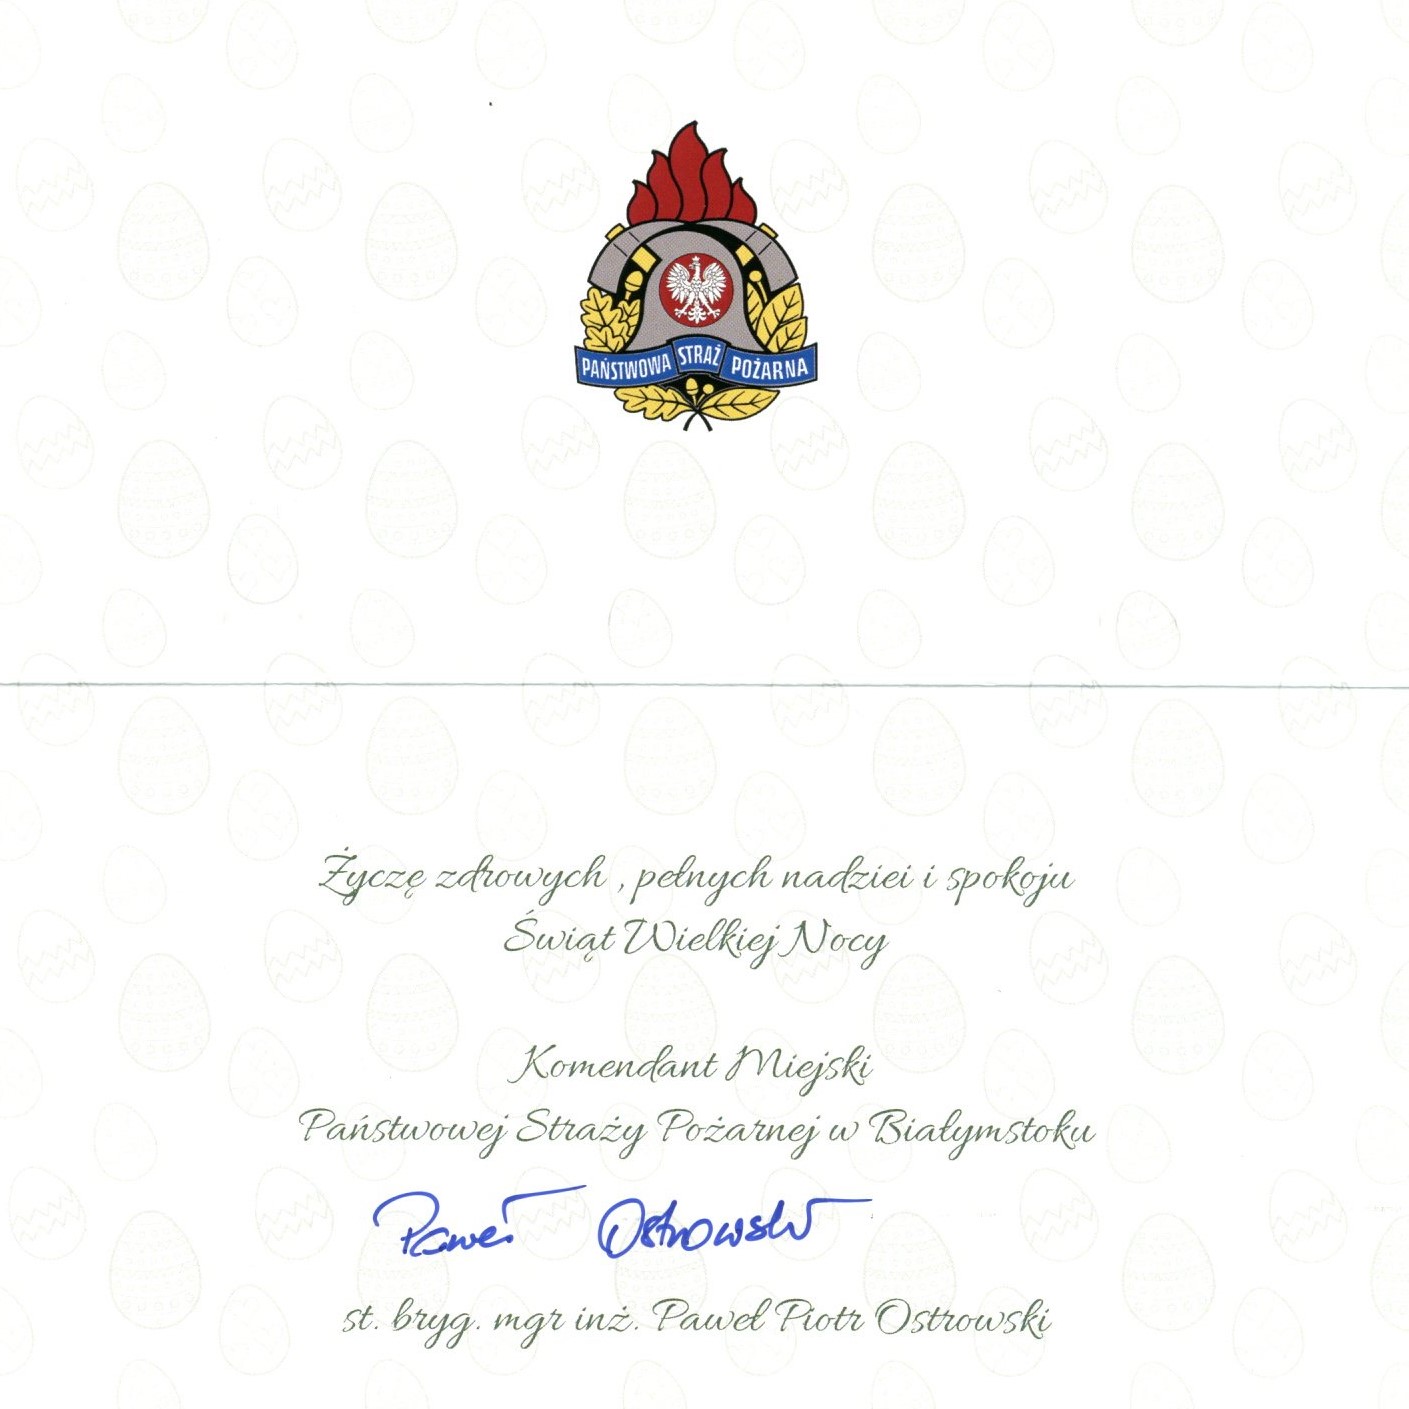 PAŃSTWOWA STRAŻ POŻARNA
Życzę zdrowych , pełnych nadziei i spokoju
Świąt Wielkiej Nocy
Komendant Miejski
Państwowej Straży Pożarnej w Białymstoku
Paweł Ostrowski
st. bryg. mgr inż. Paweł Piotr Ostrowski